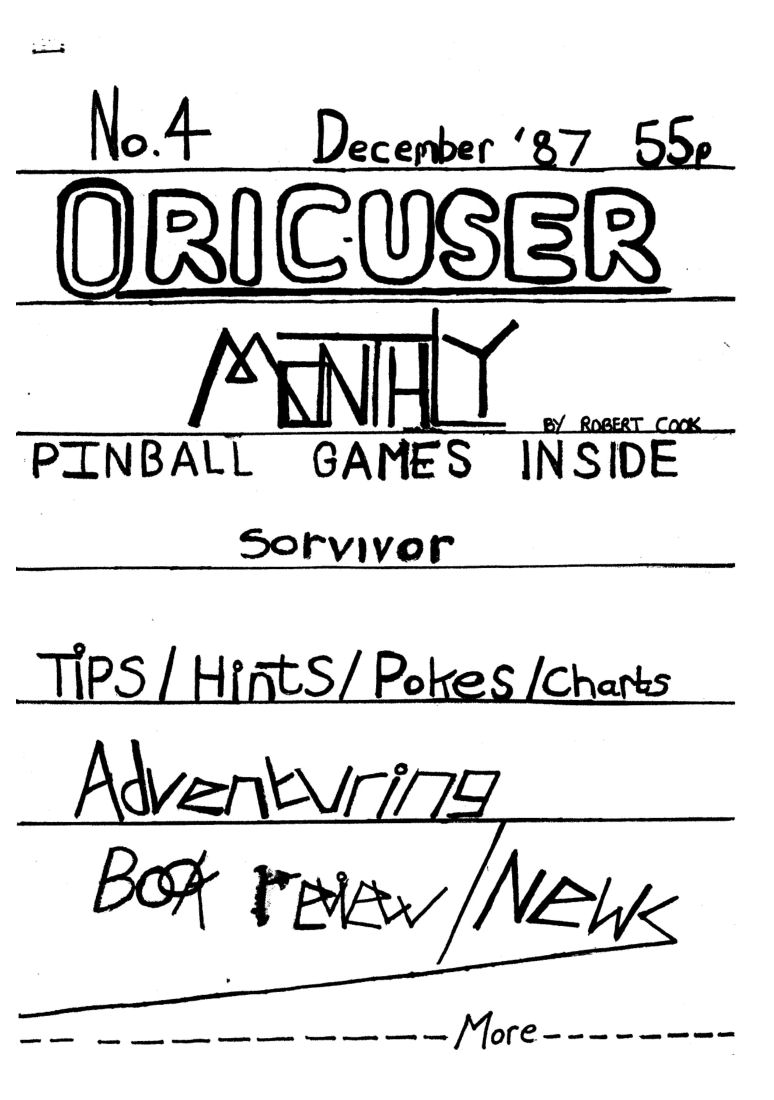 No.4 December '87 55p
ORIC-USER
MONTHLY
BY ROBERT COOK
PINBALL GAMES INSIDE
Sorvivor
TiPS / HintS / Pokes / Charts
Adventuring
Book review / News
More